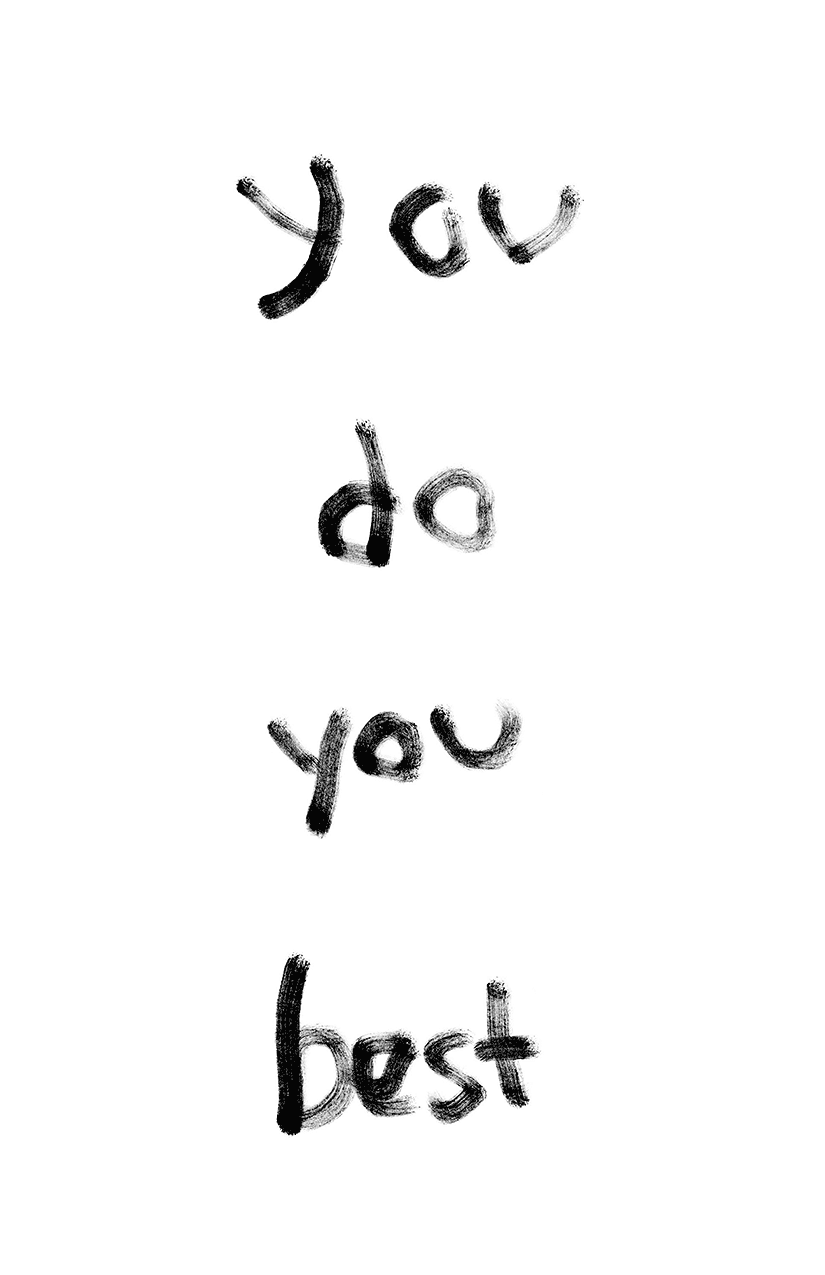 you
do
you
best